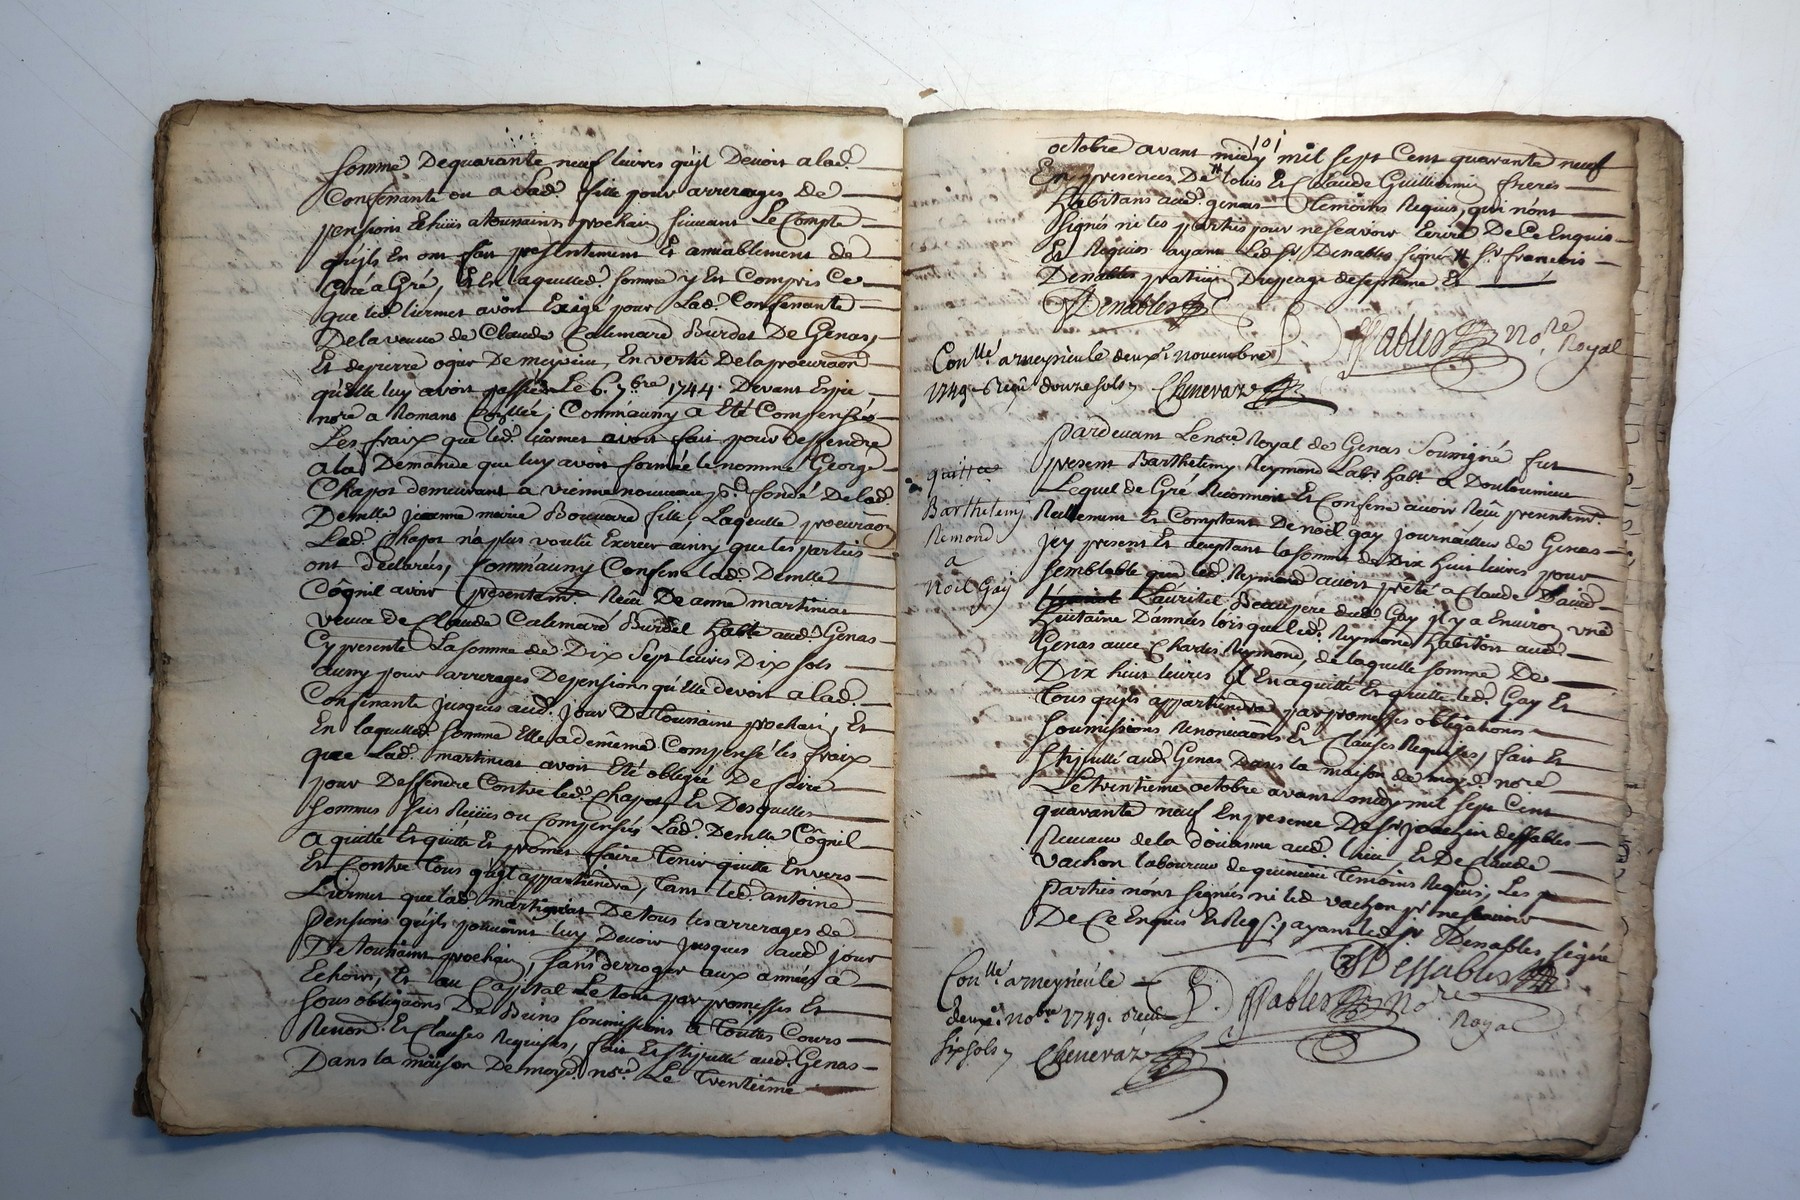 somme de quarante neuf livres qu'jl devoit a lad.
Confenante ou a Lad. fille pour arrerages de
pensions Echûs a toussaints prochain suivant Le Compte
qu'jls En ont fait presentement Et amiablement de
Gré a Gré, Et En laquelled. somme y Est Compris Ce
que led. Liermet avoit Exigé pour Lad. Confenante
De la veuve de Claude Calemard Burdet De Genas,
Et de pierre oger De meyzieu, En vertu De la procuraõn
qu'Elle luy avoit passée Le 6. 7.bre 1744. Devant
nore a Romans Comme auny a Eté Compensés
Les fraix que led. Liermet avoit fait pour deffendre
a la Demande que luy avoit formée le nommé George
Chapot demeurant a vienne nouveau fondé De lad.
Demlle Jeanne marie Bouvard fille, Laquelle procuraõn
Led. Chapot n'a plus voulu Exercer ainsy que les parties
ont déclarés, Comm'auny Confene lad. Demlle
Côgnil avoir presentemt. Reçu De anne martinias
veuve de Claude Calemard Burdel habte aud. Genas
Cy presente La somme de Dix sept livres Dix sols
auny pour arrerages De pensions qu'Elle devoit a lad.
Confenante jusques aud. jour De Toussaint prochain, Et
En laquelled. somme Elle a de même Compensé les fraix
que Lad. martinias avoit Eté obligée De faire
pour Deffendre Contre led. Chapot, Et Desquelles
sommes sus Reçües ou Compensées Lad. Demlle Côgnil
a quitté Et quitte Et promet faire Tenir quitte Envers
Et Contre Tous qu'jl appartiendra, Tant led. antoine
Liermet que lad. martinias De tous les arrerages de
pensions qu'jls pouvoint luy Devoir jusques aud. jour
De toussaint prochain, sans derroger aux années a
Echoir, Et au Capital Le tout par promesses Et
sous obligaõns De Biens soumissions a Touttes Cours
Renond. Et Clauses Requises, fait Et stipullé aud. Genas
Dans la maison De moyd. nore. Le Trentiême
101
octobre avant midy mil sept Cent quarante neuf
En presences De Louis Et Claude Guillermin freres
habitans aud. genas Temoins Requis, qui n'ont
signés ni les parties pour ne sçavoir Ecrire De Ce Enquis
Et Requis ayant Led. Sr Denables signé Sr françois
Denables
Denables
Dessables Nore. Royal
Conllé a meyrieule deuxe. novembre
1749. Reçu douze sols Chenevaz
Pardevant Le nore. Royal de Genas Soussigné fut
present Barthelemy Reymond Labr. habt a
Lequel de Gré Reconnoit Et Confene avoir Reçu presentemt.
Rellement Et Comptant De noël gay journailleur de Genas
jcy present Et acceptant la somme de Dix huit livres pour
semblable que led. Reymond avoit preté a Claude David
Lauritel Beaupere dud. Gay jl y a Environ une
huitaine D'années lors que led. Reymond habitoit aud.
Genas avec Charles Reymond, de laquelle somme De
Dix huit livres jl En a quitté Et quitte led. Gay Et
Tous qu'jls appartiendra par promesses obligations
soumissions Renonciaõns Et Clauses Requises, fait Et
stipullé aud. Genas Dans la maison de moyd. nore
Le trentieme octobre avant midy mil sept Cent
quarante neuf En presence De Sr dessables
Receveur de la doüanne aud. lieu, Et De Claude
vachon laboureur de Temoins Requis, Les
parties n'ont signés ni led vachon pr ne sçavoir
De Ce Enquis Et Reqs. ayant led. Sr Dessables signé
quittce
Barthelemy
Remond
a
Noel Gay
Dessables
Dessables Nore
Royal
Conllé a meyrieule
deuxe. nobre 1749. Reçu
six sols Chenevaz